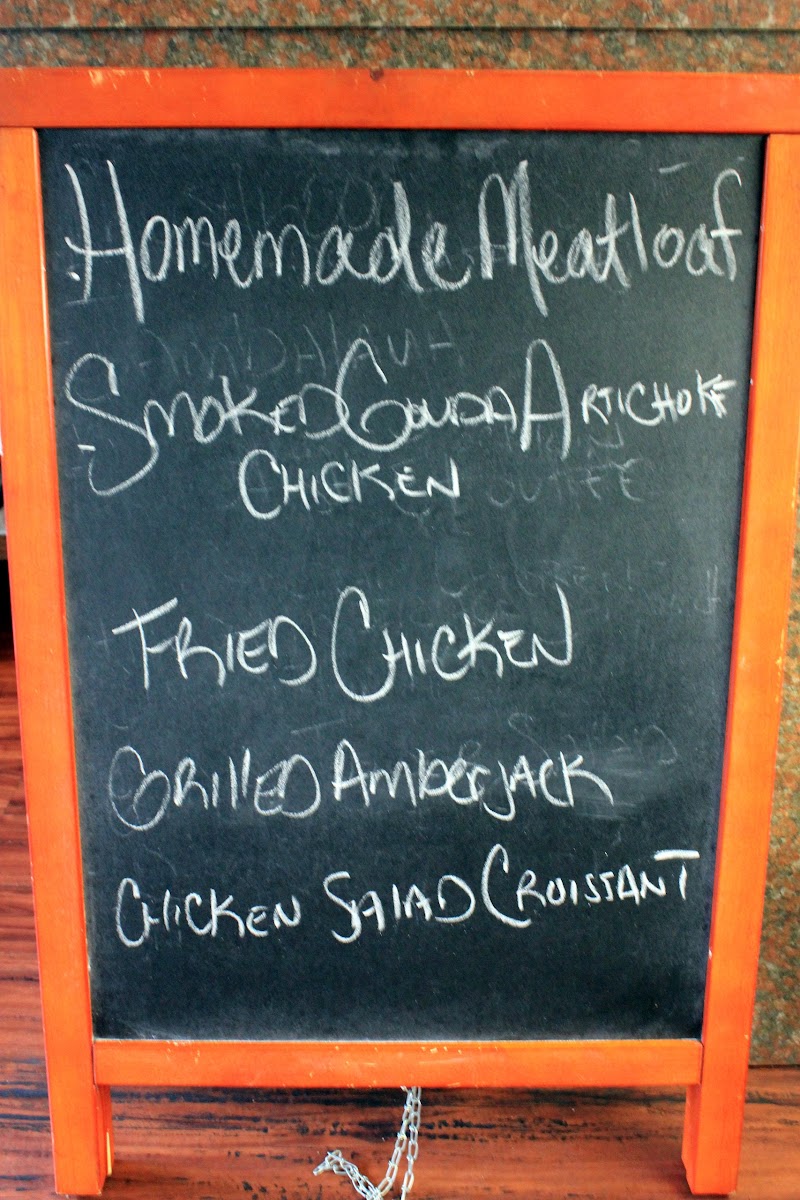 Homemade Meatloaf
SMOKED GOUDA ARTICHOKE
CHICKEN
FRIED CHICKEN
GRILLED AMBERJACK
CHICKEN SALAD CROISSANT